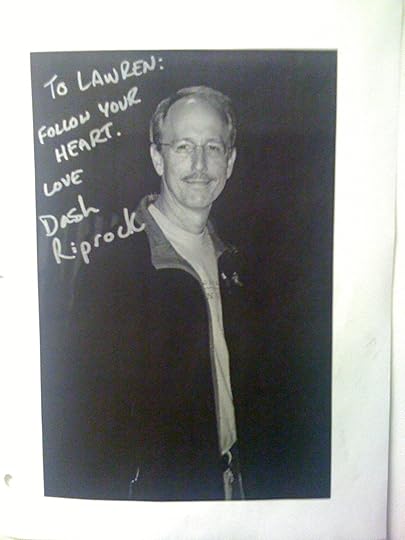 TO LAWREN:
FOLLOW YOUR
HEART.
LOVE
Dash
Riprock